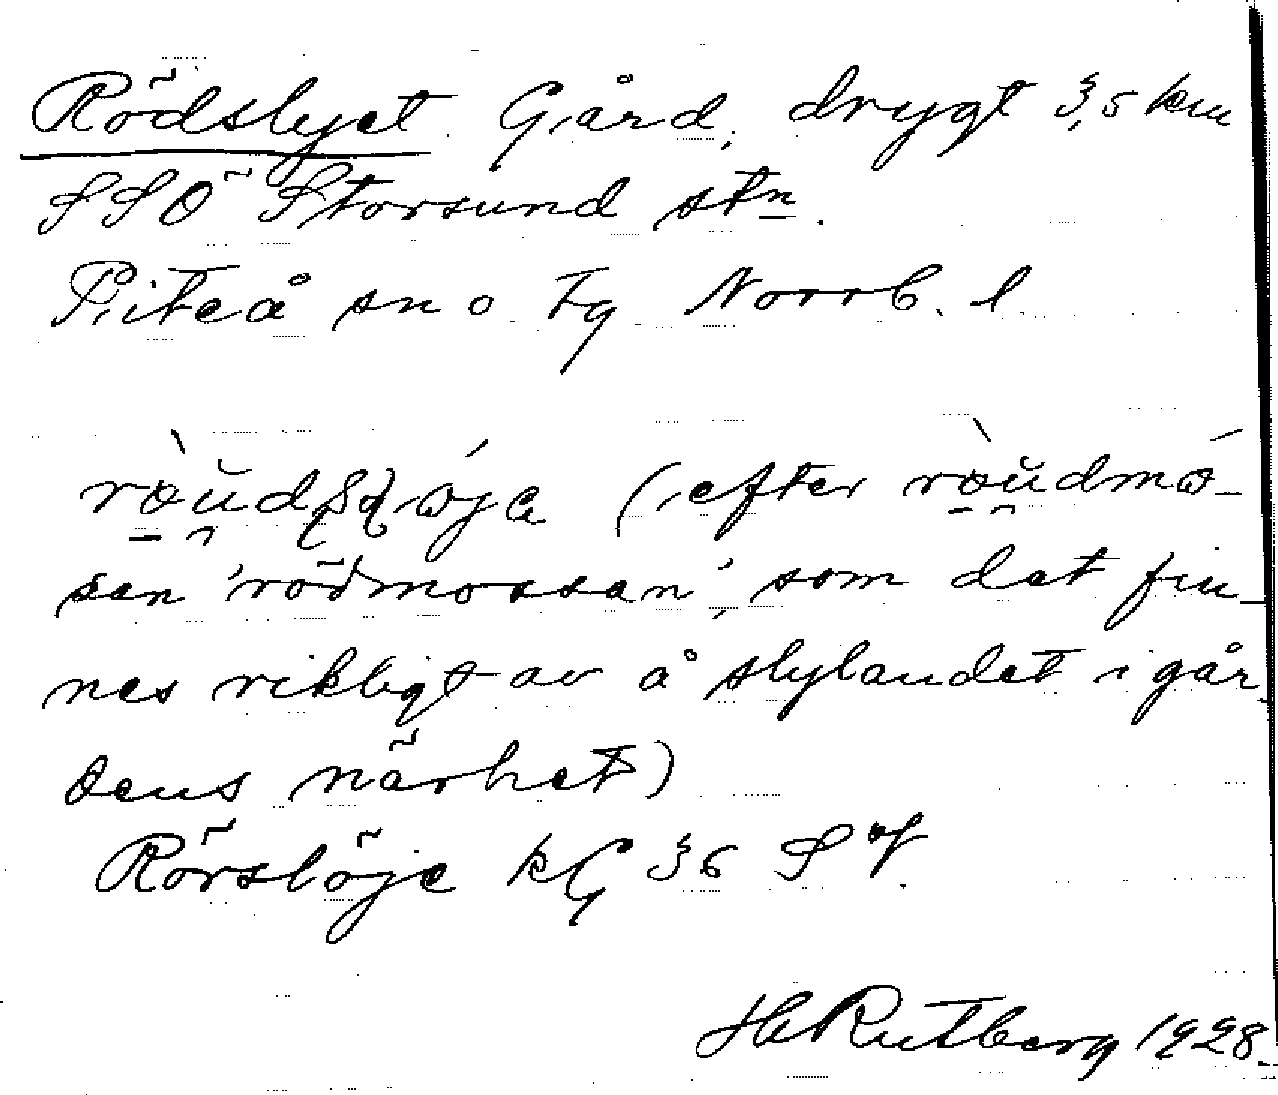 Rödslyet. Gård, drygt 3,5 km
SSÖ Storsund stn.
Piteå sn o tg Norrb. l
(efter
sen 'rödmossan', som det fin-
nes rikligt av å slylandet i går-
dens närhet)
Rörslöje kG 36 S
H Rutberg 1928